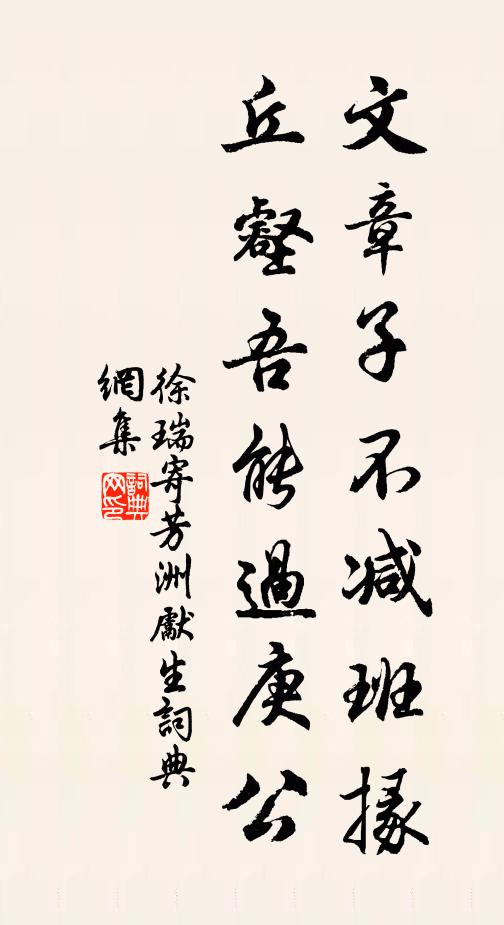 文章子不減班掾
丘壑吾能過庚公
徐瑞寄芳洲獻生詞典
網集
詞典網印